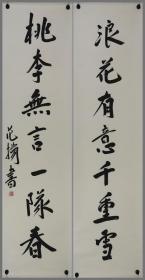 浪花有意千重雪
桃李無言一隊春
范揚書